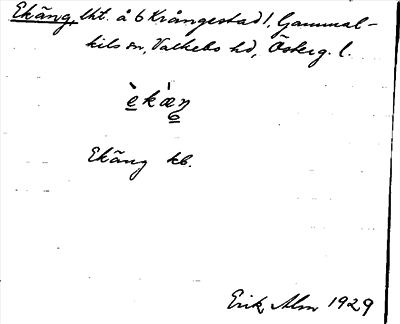 Ekäng, lht. å 6 Krångestad 1, Gammal-
kils sn, Valkebo hd, Österg. l.
è̲kæ̀ŋ
Ekäng kb.
Erik Alm 1929